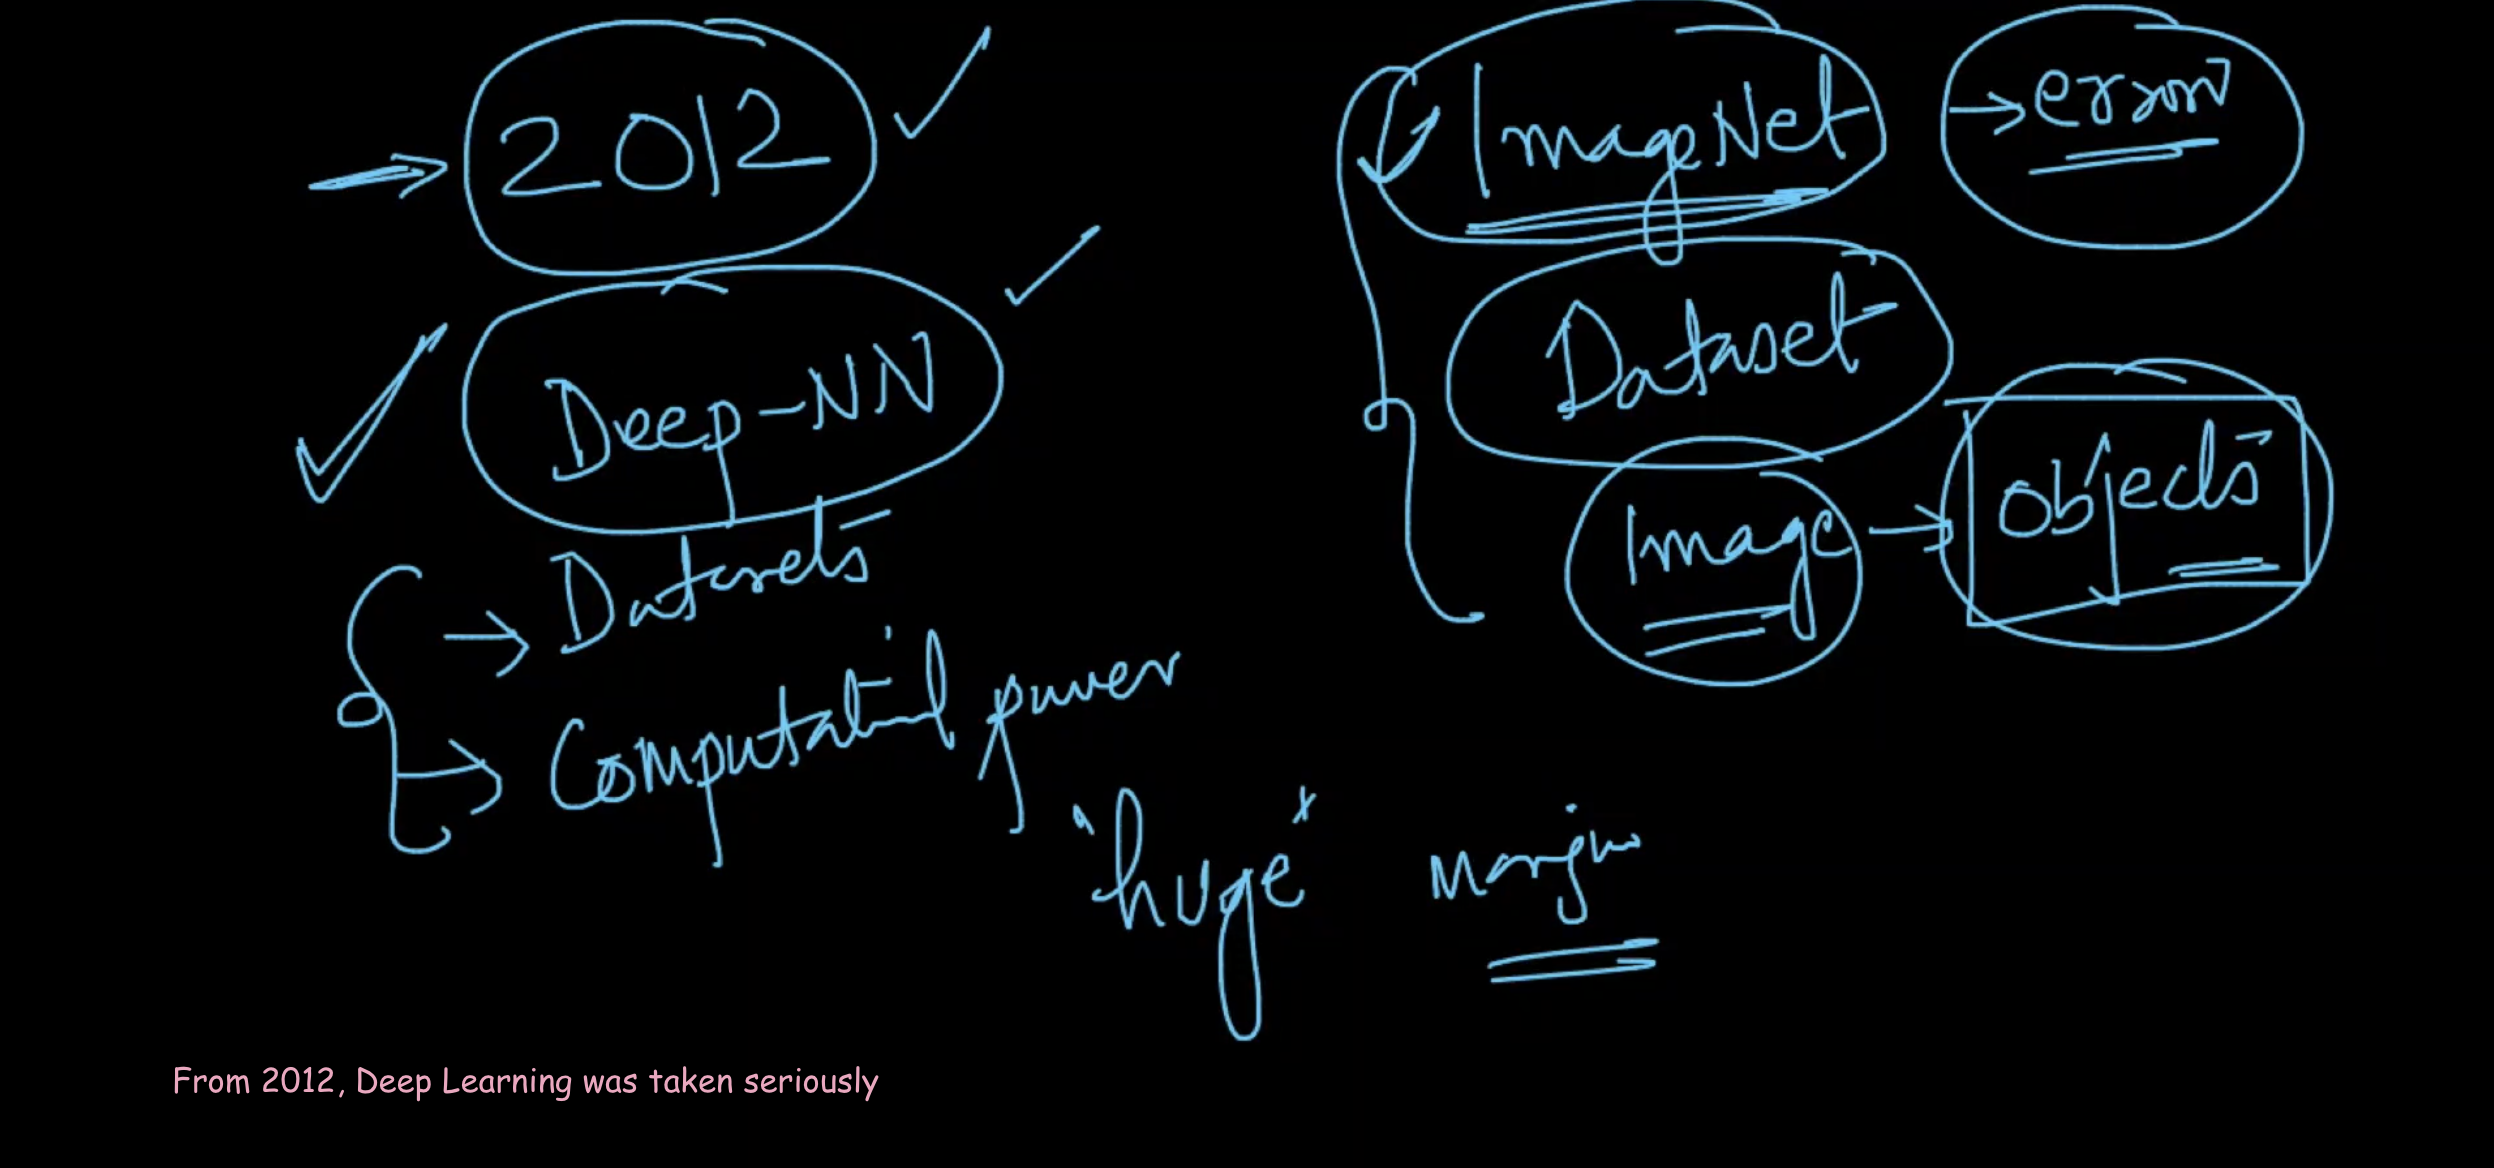 2012
Deep-NN
→ Datasets
→ Computational power
ImageNet
→ error
Dataset
Image → objects
"huge" margin
From 2012, Deep Learning was taken seriously